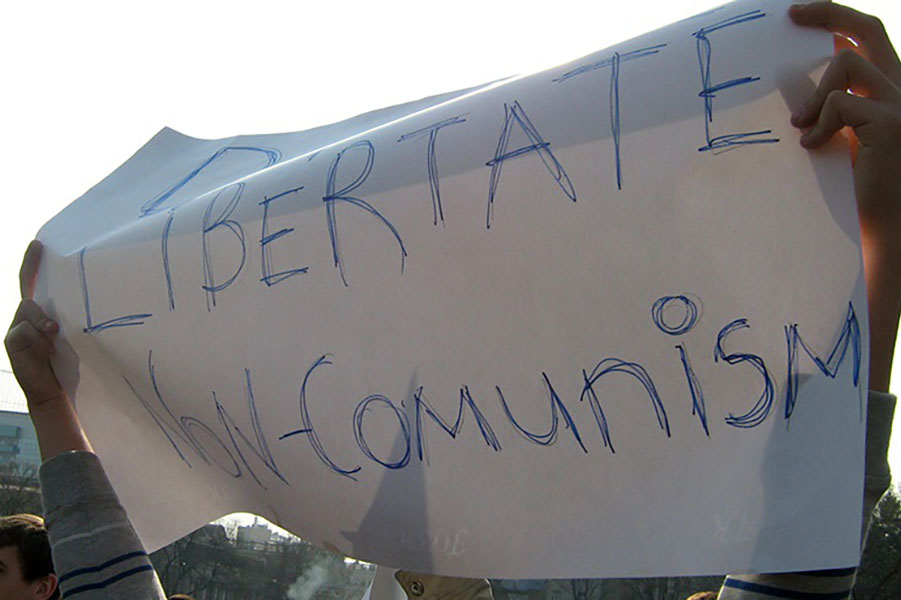 LIBERTATE
NON-COMUNiSM